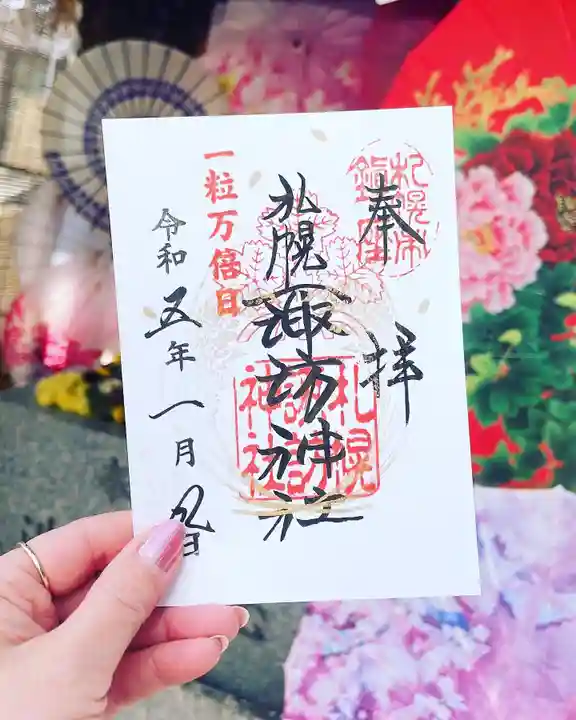 奉拝
札幌市
鎮座
札幌諏訪神社
札幌
諏訪
神社
一粒万倍日
令和五年一月九日